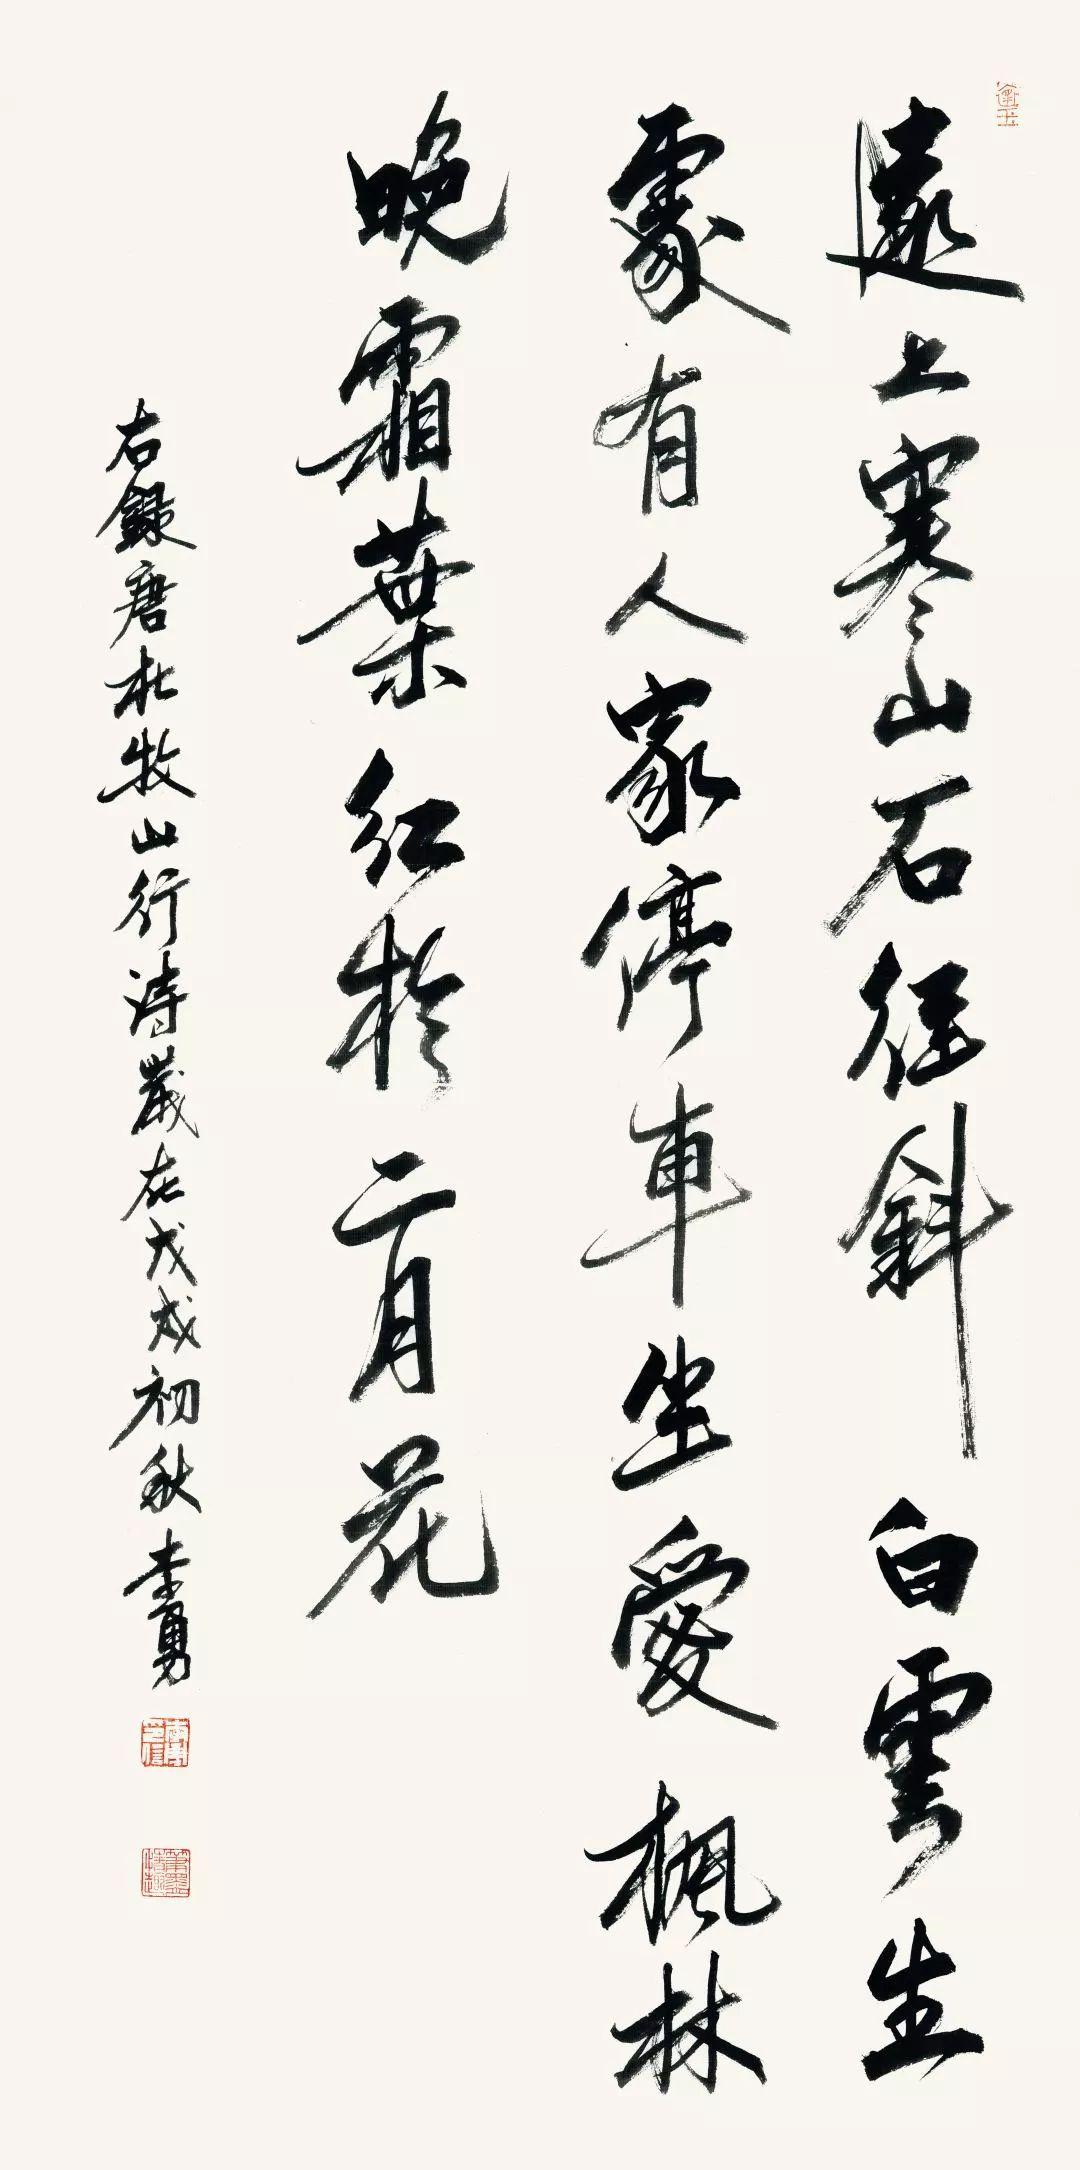 遠上寒山石徑斜白雲生
處有人家停車坐愛楓林
晚霜葉紅於二月花
右錄唐杜牧山行詩歲在戊戌初秋李勇